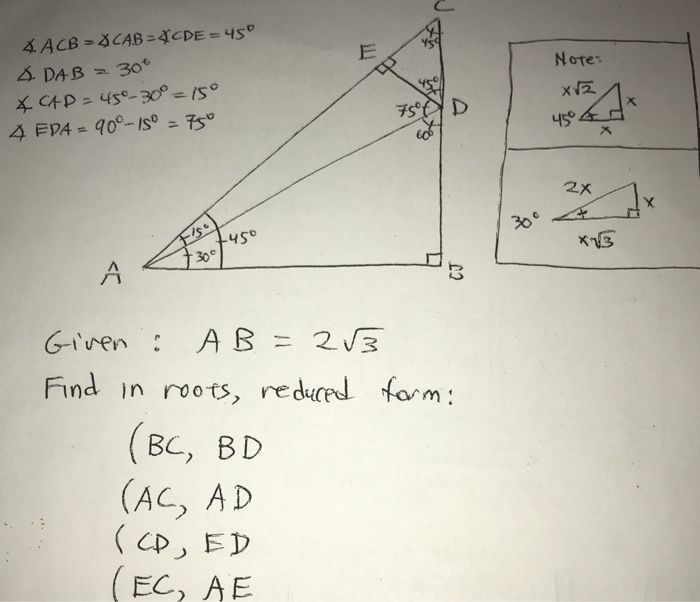 ∡ ACB = ∡CAB = ∡CDE = 45°
∡ DAB = 30°
∡ CAD = 45° - 30° = 15°
∡ EDA = 90° - 15° = 75°
C
45°
E
45°
75°
D
60°
15°
45°
30°
A
B
Note:
x√2
x
45°
x
2x
x
30°
x√3
Given : AB = 2√3
Find in roots, reduced form:
(BC, BD
(AC, AD
(CD, ED
(EC, AE